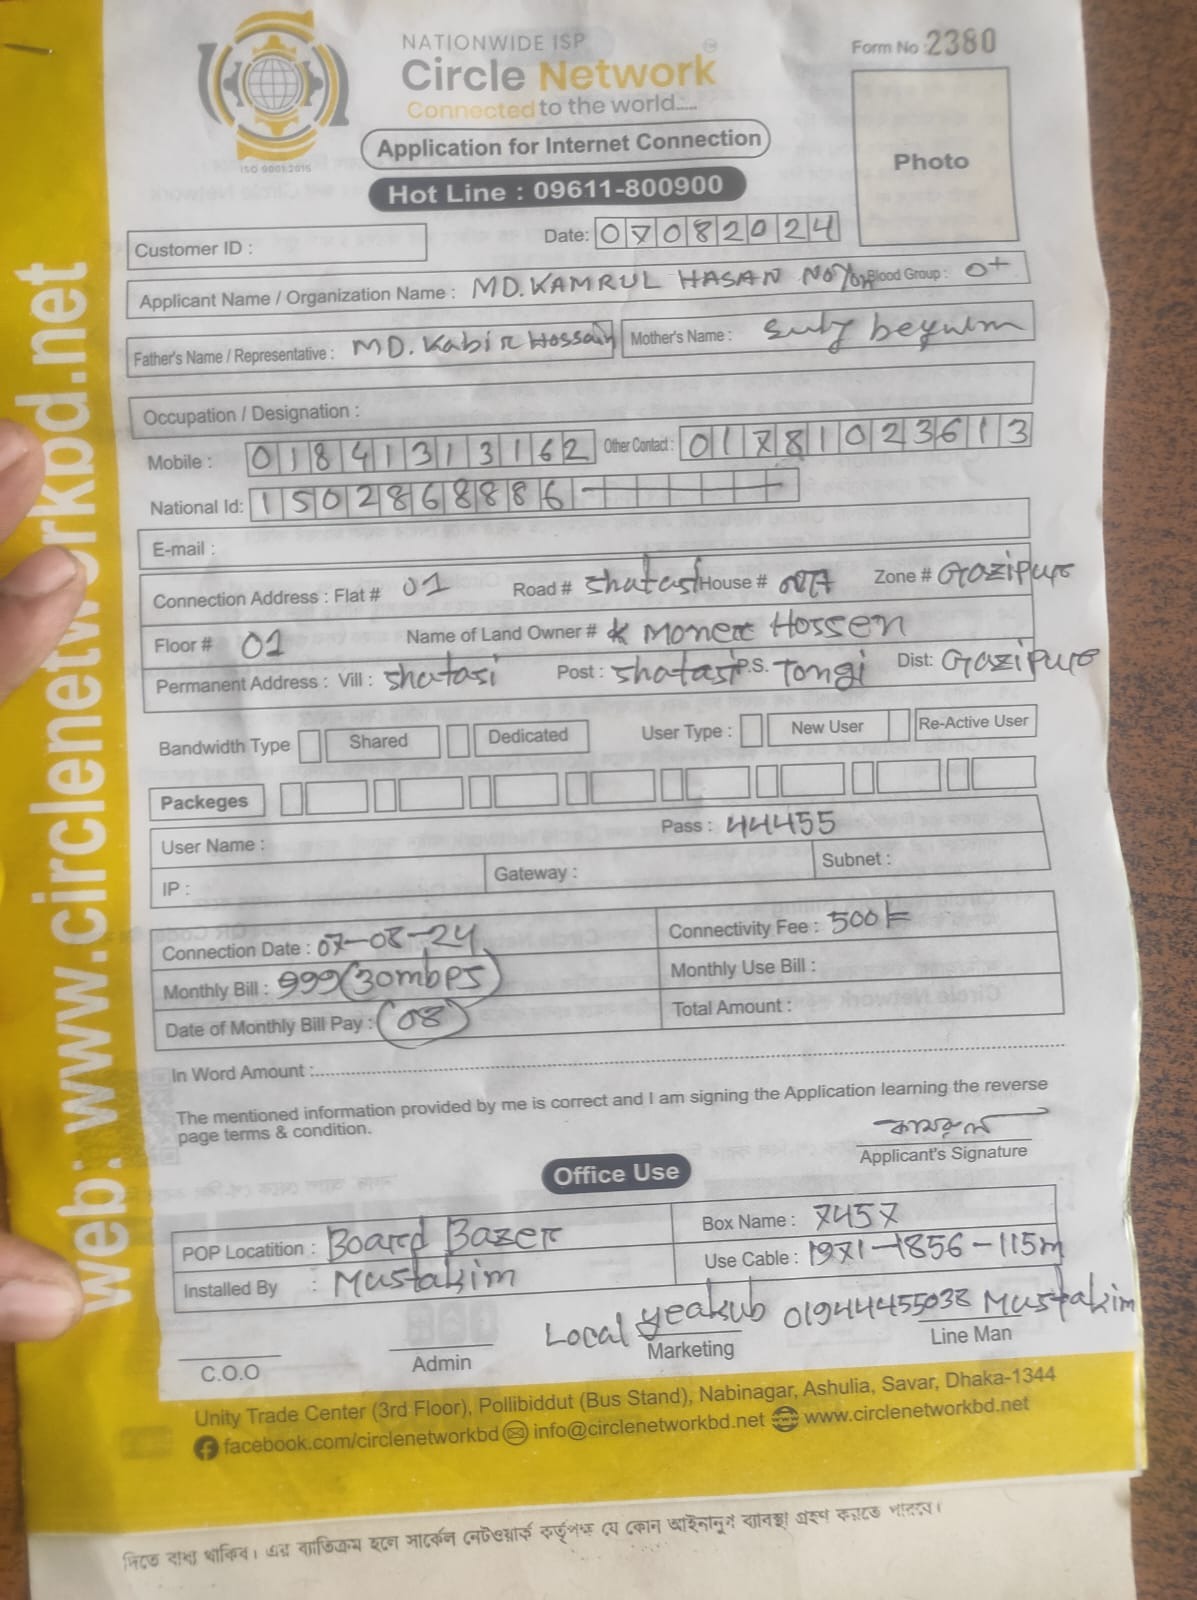 web: www.circlenetworkbd.net
NATIONWIDE ISP
Circle Network
Connected to the world.....
ISO 9001:2015
Form No : 2380
Application for Internet Connection
Photo
Hot Line : 09611-800900
Customer ID :
Date: 07082024
Applicant Name / Organization Name : MD. KAMRUL HASAN Blood Group : O+
Father's Name / Representative : MD. Kabir Hossain Mother's Name : beyulm
Occupation / Designation :
Mobile : 01841313162 Other Contact : 01781023613
National Id: 1502868886
E-mail :
Connection Address : Flat # 01 Road # Shatasi House # Zone # Gazipur
Floor # 01 Name of Land Owner # Moner Hossen
Permanent Address : Vill : Shatasi Post : Shatasi P.S. Tongi Dist: Gazipur
Bandwidth Type Shared Dedicated User Type : New User Re-Active User
Packeges
User Name : Pass : 44455
IP : Gateway : Subnet :
Connection Date : 07-08-24 Connectivity Fee : 500/=
Monthly Bill : 999 (30mbps) Monthly Use Bill :
Date of Monthly Bill Pay : (08) Total Amount :
In Word Amount :
The mentioned information provided by me is correct and I am signing the Application learning the reverse
page terms & condition.
কামরুল
Applicant's Signature
Office Use
POP Locatition : Board Bazer Box Name : 7457
Installed By : Mustakim Use Cable : 1971-1856-115m
Local yeakub 01944455038 Mustakim
C.O.O Admin Marketing Line Man
Unity Trade Center (3rd Floor), Pollibiddut (Bus Stand), Nabinagar, Ashulia, Savar, Dhaka-1344
facebook.com/circlenetworkbd info@circlenetworkbd.net www.circlenetworkbd.net
দিতে বাধ্য থাকিব। এর ব্যতিক্রম হলে সার্কেল নেটওয়ার্ক কর্তৃপক্ষ যে কোন আইনানুগ ব্যবস্থা গ্রহণ করতে পারবে।